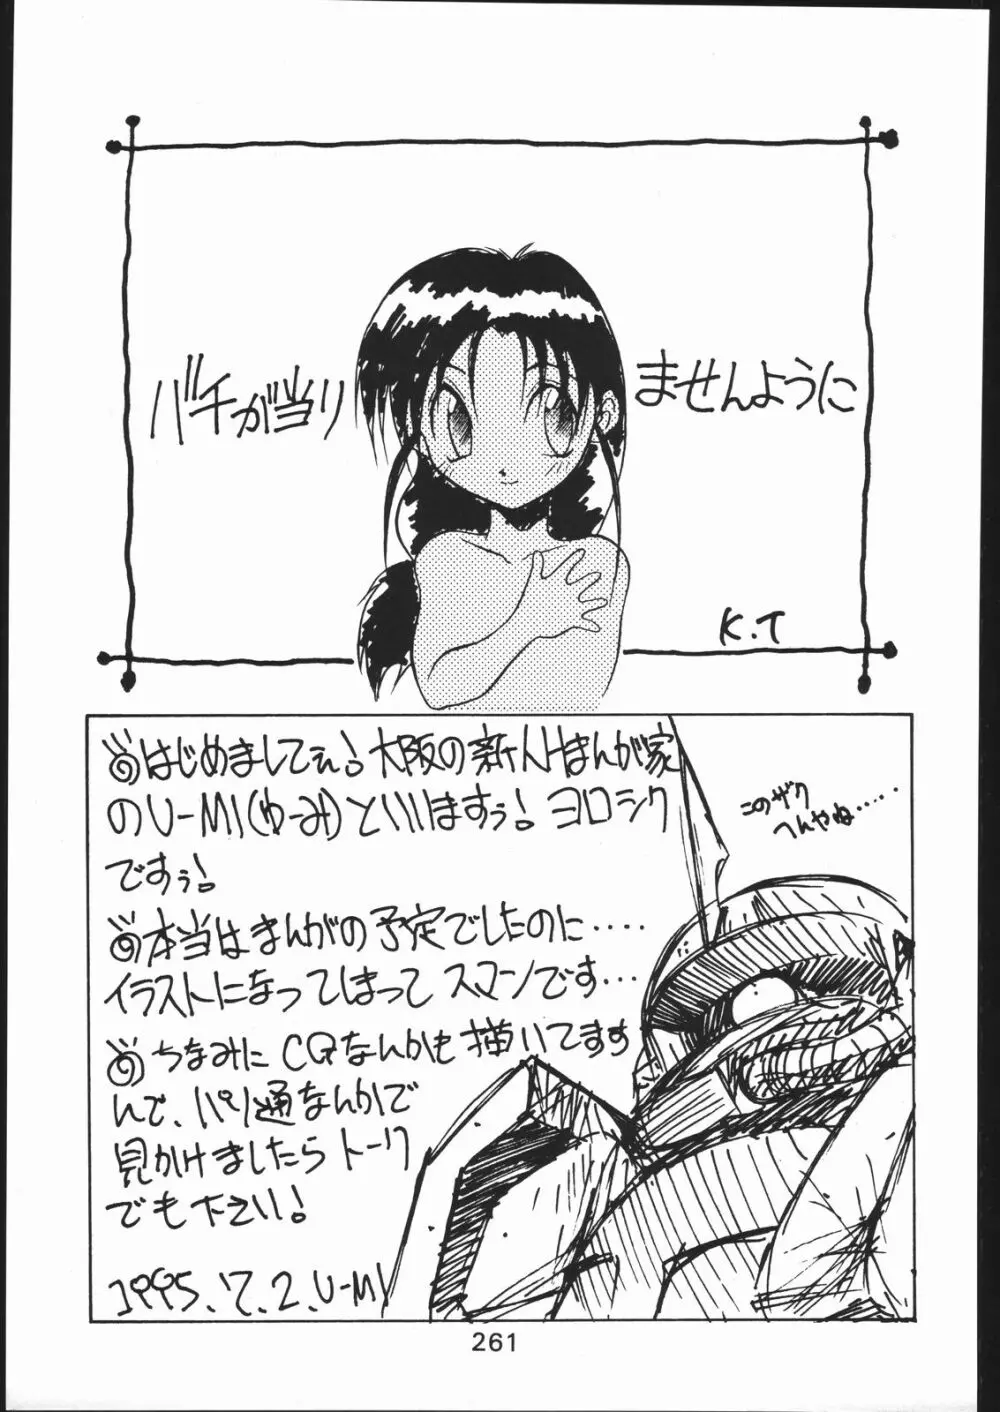 バチが当り
ませんように
K.T
はじめましてぇ!大阪の新人Hまんが家
のU-MI(ゆーみ)といいますぅ!ヨロシク
ですぅ!
本当はまんがの予定でしたのに‥‥
イラストになってしまってスマンです…
ちなみにCGなんかも描いてます
んで、パソ通なんかで
見かけましたらトーク
でも下さい!
1995.7.2.U-MI
このザク
へんやね……
261